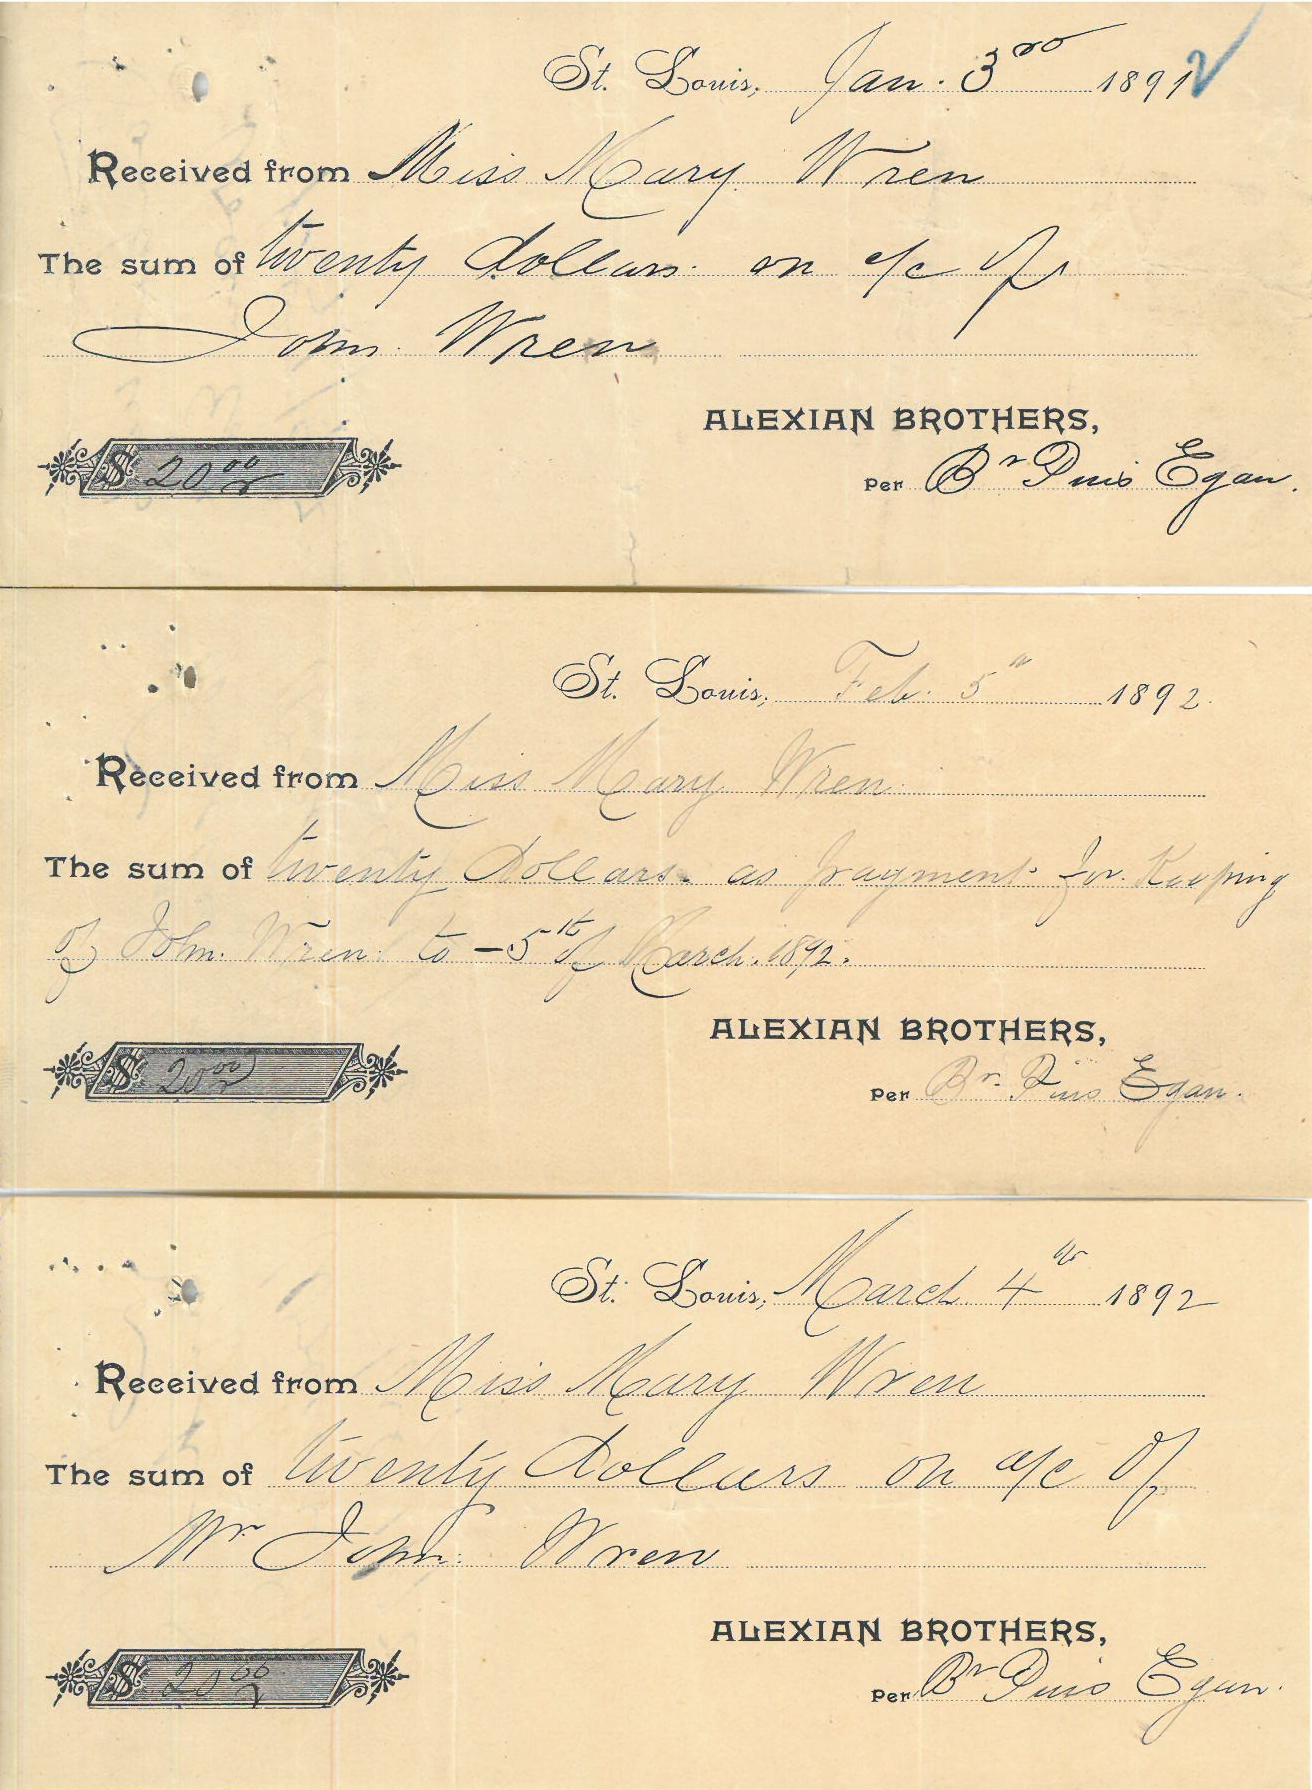 St. Louis, Jan. 3rd 1891
Received from Miss Mary Wren
The sum of twenty dollars. on a/c of
John. Wren
ALEXIAN BROTHERS,
$ 20 00
Per Br Pius Egan.
St. Louis, Feb. 5th 1892.
Received from Miss Mary Wren
The sum of twenty Dollars. as payment for Keeping
of John. Wren to - 5th of March. 1892.
ALEXIAN BROTHERS,
$ 20 00
Per Br. Pius Egan.
St. Louis, March 4th 1892
Received from Miss Mary Wren
The sum of twenty Dollars on a/c of
Mr John. Wren
ALEXIAN BROTHERS,
$ 20 00
Per Br Pius Egan.